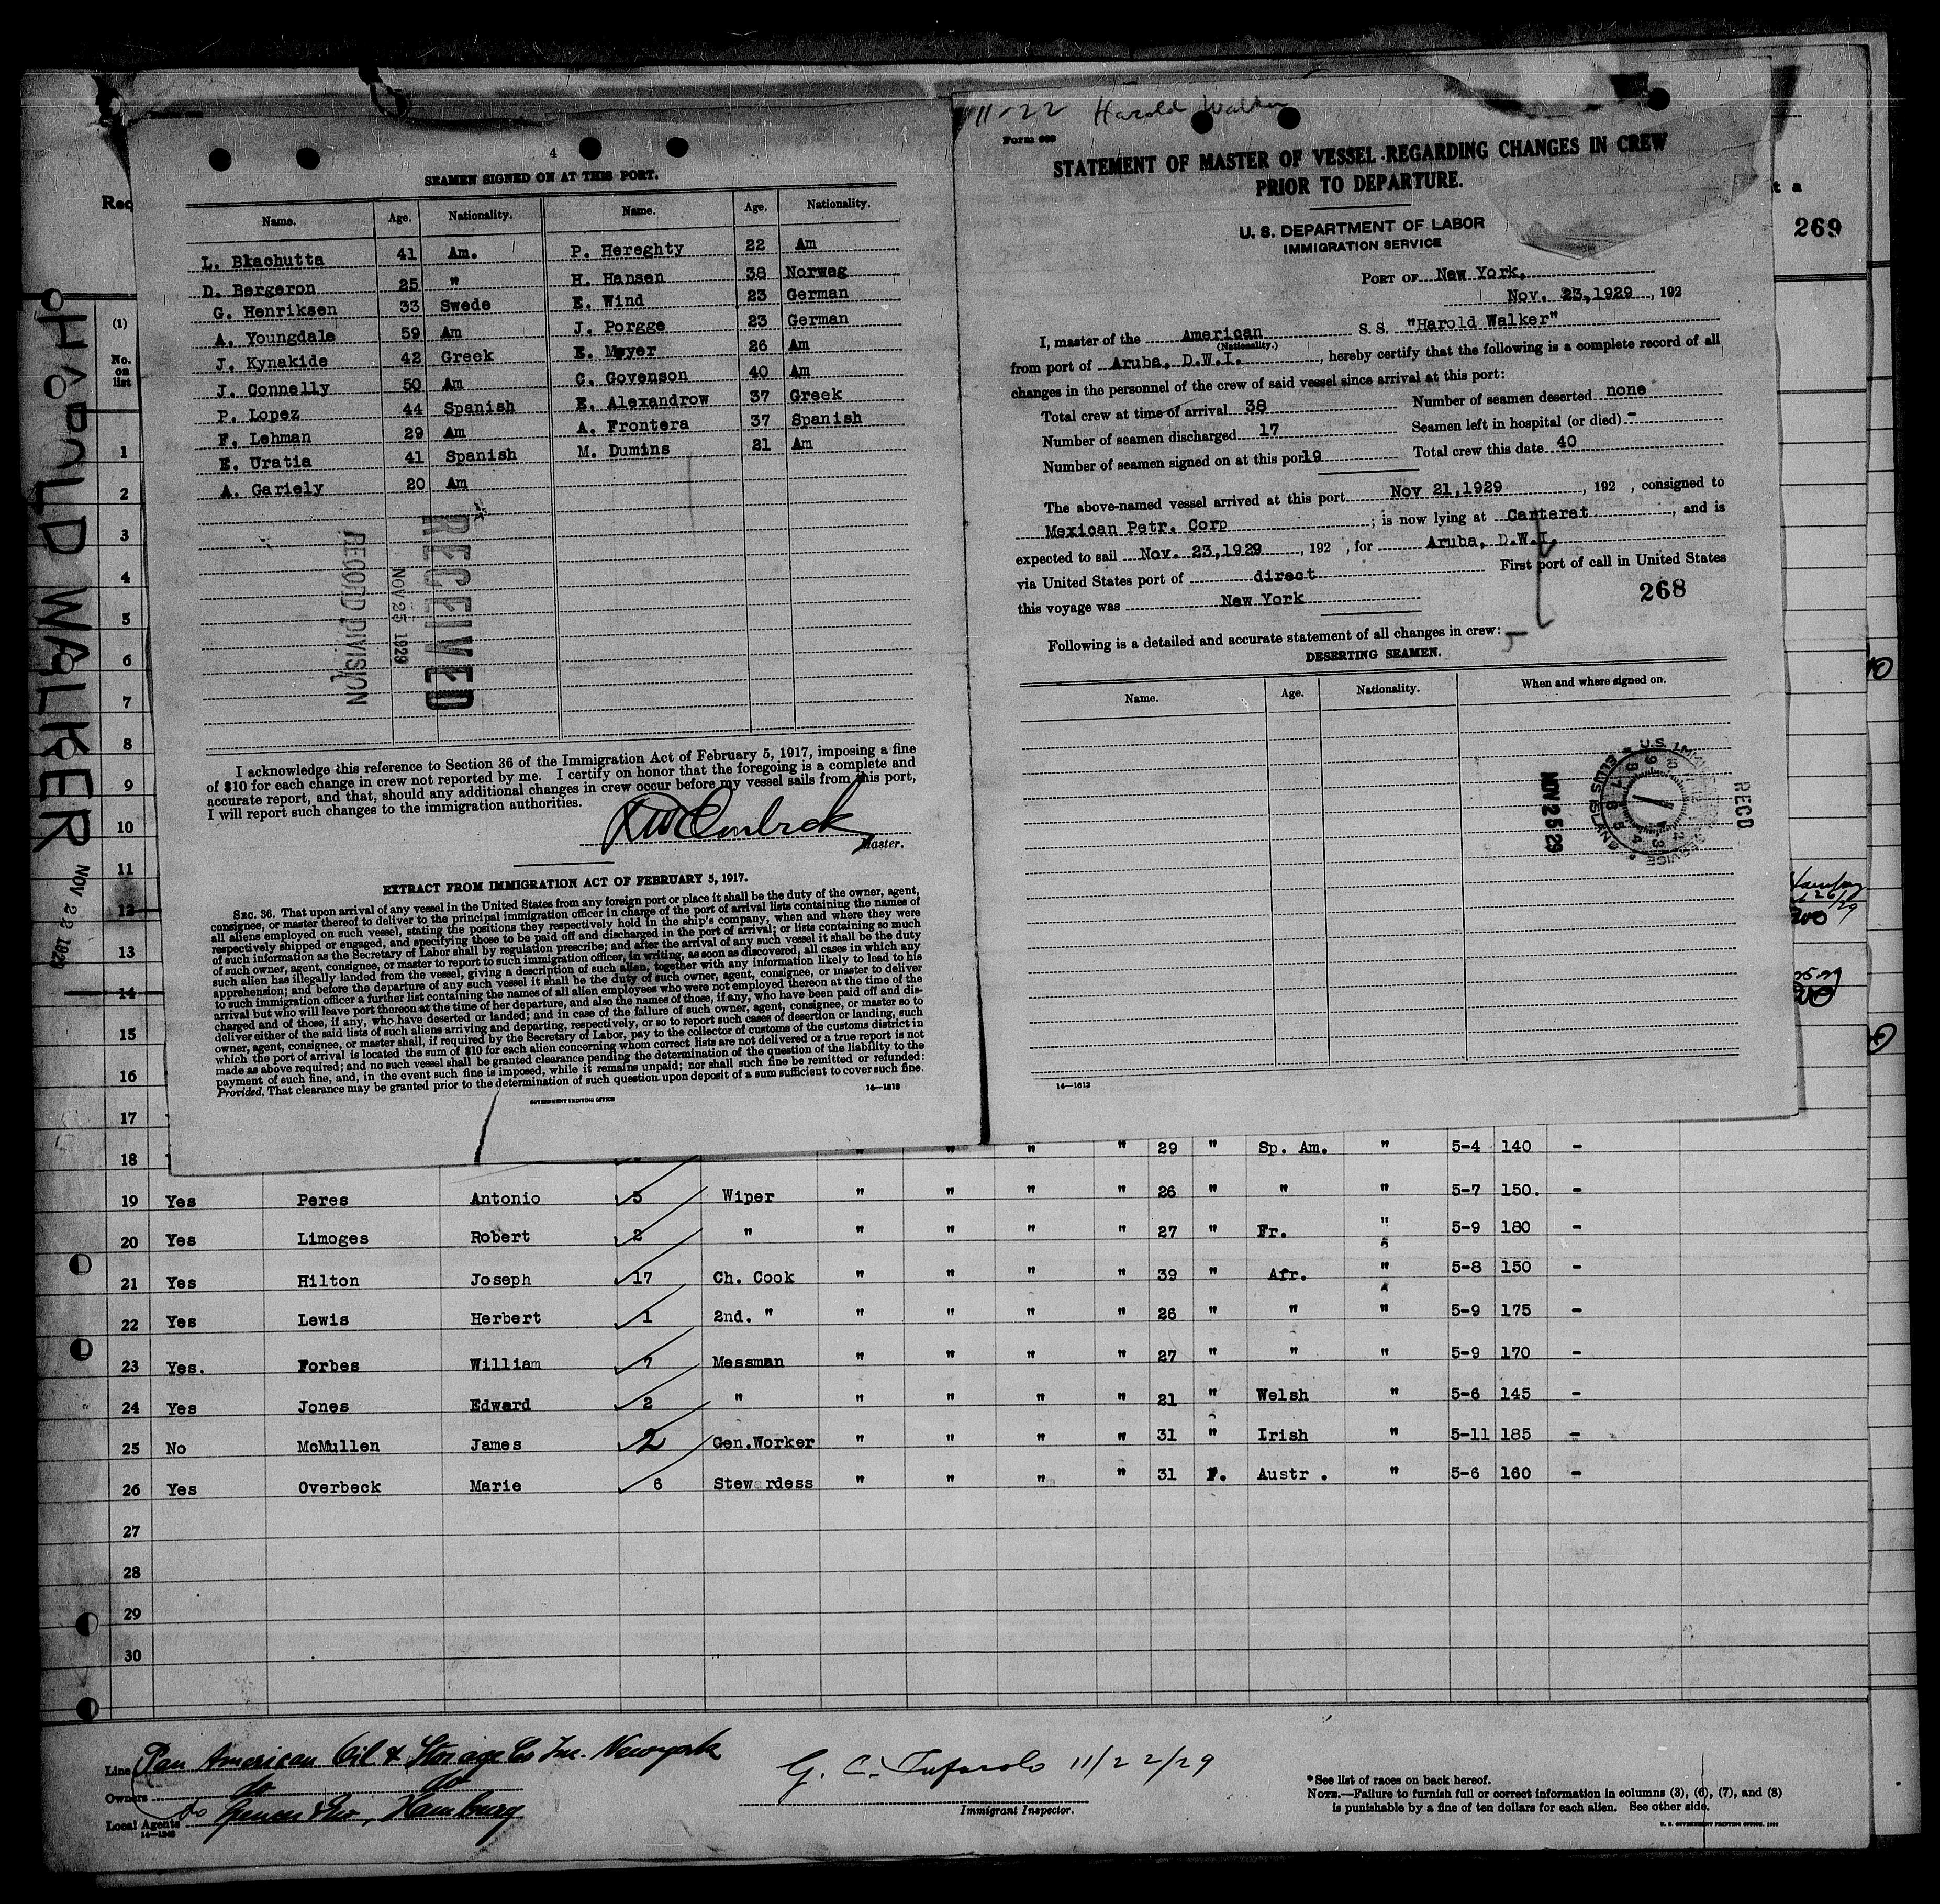 11-22 Harold Walker
4
SEAMEN SIGNED ON AT THIS PORT.
Name. Age. Nationality. Name. Age. Nationality.
L. Blachutta 41 Am. P. Hereghty 22 Am
D. Bergeron 25 " H. Hansen 38 Norweg
G. Henriksen 33 Swede E. Wind 23 German
A. Youngdale 59 Am J. Porgge 23 German
J. Kynakide 42 Greek E. Meyer 26 Am
J. Connelly 50 Am C. Govenson 40 Am
P. Lopez 44 Spanish E. Alexandrow 37 Greek
F. Lehman 29 Am A. Frontera 37 Spanish
E. Uratia 41 Spanish M. Dumins 21 Am
A. Gariely 20 Am
RECEIVED
NOV 25 1929
RECORD DIVISION
I acknowledge this reference to Section 36 of the Immigration Act of February 5, 1917, imposing a fine
of $10 for each change in crew not reported by me. I certify on honor that the foregoing is a complete and
accurate report, and that, should any additional changes in crew occur before my vessel sails from this port,
I will report such changes to the immigration authorities.
Master.
EXTRACT FROM IMMIGRATION ACT OF FEBRUARY 5, 1917.
SEC. 36. That upon arrival of any vessel in the United States from any foreign port or place it shall be the duty of the owner, agent,
consignee, or master thereof to deliver to the principal immigration officer in charge of the port of arrival lists containing the names of
all aliens employed on such vessel, stating the positions they respectively hold in the ship's company, when and where they were
respectively shipped or engaged, and specifying those to be paid off and discharged in the port of arrival; or lists containing so much
of such information as the Secretary of Labor shall by regulation prescribe; and after the arrival of any such vessel it shall be the duty
of such owner, agent, consignee, or master to report to such immigration officer, in writing, as soon as discovered, all cases in which any
such alien has illegally landed from the vessel, giving a description of such alien, together with any information likely to lead to his
apprehension; and before the departure of any such vessel it shall be the duty of such owner, agent, consignee, or master to deliver
to such immigration officer a further list containing the names of all alien employees who were not employed thereon at the time of the
arrival but who will leave port thereon at the time of her departure, and also the names of those, if any, who have been paid off and dis-
charged and of those, if any, who have deserted or landed; and in case of the failure of such owner, agent, consignee, or master so to
deliver either of the said lists of such aliens arriving and departing, respectively, or so to report such cases of desertion or landing, such
owner, agent, consignee, or master shall, if required by the Secretary of Labor, pay to the collector of customs of the customs district in
which the port of arrival is located the sum of $10 for each alien concerning whom correct lists are not delivered or a true report is not
made as above required; and no such vessel shall be granted clearance pending the determination of the question of the liability to the
payment of such fine, and, in the event such fine is imposed, while it remains unpaid; nor shall such fine be remitted or refunded:
Provided, That clearance may be granted prior to the determination of such question upon deposit of a sum sufficient to cover such fine.
14—1613
GOVERNMENT PRINTING OFFICE
Form 689
STATEMENT OF MASTER OF VESSEL REGARDING CHANGES IN CREW
PRIOR TO DEPARTURE.
U. S. DEPARTMENT OF LABOR
IMMIGRATION SERVICE
PORT OF New York,
Nov. 23,1929, 192
I, master of the American S. S. "Harold Walker"
(Nationality.)
from port of Aruba, D.W.I., hereby certify that the following is a complete record of all
changes in the personnel of the crew of said vessel since arrival at this port:
Total crew at time of arrival 38 Number of seamen deserted none
Number of seamen discharged 17 Seamen left in hospital (or died) -
Number of seamen signed on at this port 19 Total crew this date 40
The above-named vessel arrived at this port Nov 21,1929, 192 , consigned to
Mexican Petr. Corp ; is now lying at Carteret, and is
expected to sail Nov. 23,1929, 192 , for Aruba, D.W.I.
via United States port of direct First port of call in United States
this voyage was New York
268
Following is a detailed and accurate statement of all changes in crew:
DESERTING SEAMEN.
Name. Age. Nationality. When and where signed on.
U.S. IMMIG SERVICE ELLIS ISLAND
NOV 25 29
RECD
14—1613
Req
t a
269
HAROLD WALKER
NOV 22 1929
(1)
No.
on
list
1
2
3
4
5
6
7
8
9
10
11
12
13
14
15
16
17
18 " " " " 29 " Sp. Am. " 5-4 140 -
19 Yes Peres Antonio 5 Wiper " " " " 26 " " " 5-7 150. -
20 Yes Limoges Robert 2 " " " " " 27 " Fr. " 5-9 180 -
21 Yes Hilton Joseph 17 Ch. Cook " " " " 39 " Afr. " 5-8 150 -
22 Yes Lewis Herbert 1 2nd. " " " " " 26 " " " 5-9 175 -
23 Yes. Forbes William 7 Messman " " " " 27 " " " 5-9 170 -
24 Yes Jones Edward 2 " " " " " 21 " Welsh " 5-6 145 -
25 No McMullen James 2 Gen.Worker " " " " 31 " Irish " 5-11 185 -
26 Yes Overbeck Marie 6 Stewardess " " " " 31 F. Austr. " 5-6 160 -
27
28
29
30
Line Pan American Oil & Storage Co Inc. Newyork
Owners do do
Local Agents do Hamburg
14—1240
G. C. 11/22/29
Immigrant Inspector.
*See list of races on back hereof.
NOTE.—Failure to furnish full or correct information in columns (3), (6), (7), and (8)
is punishable by a fine of ten dollars for each alien. See other side.
U. S. GOVERNMENT PRINTING OFFICE